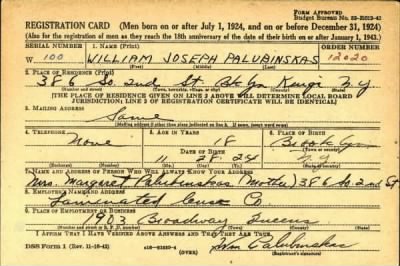 FORM APPROVED
Budget Bureau No. 33-R013-42
REGISTRATION CARD (Men born on or after July 1, 1924, and on or before December 31, 1924)
(Also for the registration of men as they reach the 18th anniversary of the date of their birth on or after January 1, 1943.)
SERIAL NUMBER 1. NAME (Print) ORDER NUMBER
W 100 WILLIAM JOSEPH PALUBINSKAS 12020
(First) (Middle) (Last)
2. PLACE OF RESIDENCE
386 So. 2nd St. Bklyn Kings N.Y.
(Number and street) (Town, township, village, or city) (County) (State)
[THE PLACE OF RESIDENCE GIVEN ON LINE 2 ABOVE WILL DETERMINE LOCAL BOARD
JURISDICTION; LINE 2 OF REGISTRATION CERTIFICATE WILL BE IDENTICAL]
3. MAILING ADDRESS
Same
[Mailing address if other than place indicated on line 2. If same, insert word same]
4. TELEPHONE 5. AGE IN YEARS 6. PLACE OF BIRTH
None 18 Brooklyn
DATE OF BIRTH
11 28 24 N.Y.
7. NAME AND ADDRESS OF PERSON WHO WILL ALWAYS KNOW YOUR ADDRESS
Mrs. Margaret Palubinskas (Mother) 386 So. 2nd St
8. EMPLOYER'S NAME AND ADDRESS
Laminated Co.
9. PLACE OF EMPLOYMENT OR BUSINESS
1903 Broadway Queens
(Number and street or R. F. D. number) (Town) (County) (State)
I AFFIRM THAT I HAVE VERIFIED ABOVE ANSWERS AND THAT THEY ARE TRUE.
DSS Form 1 (Rev. 11-16-42) (OVER) Wm Palubinskas